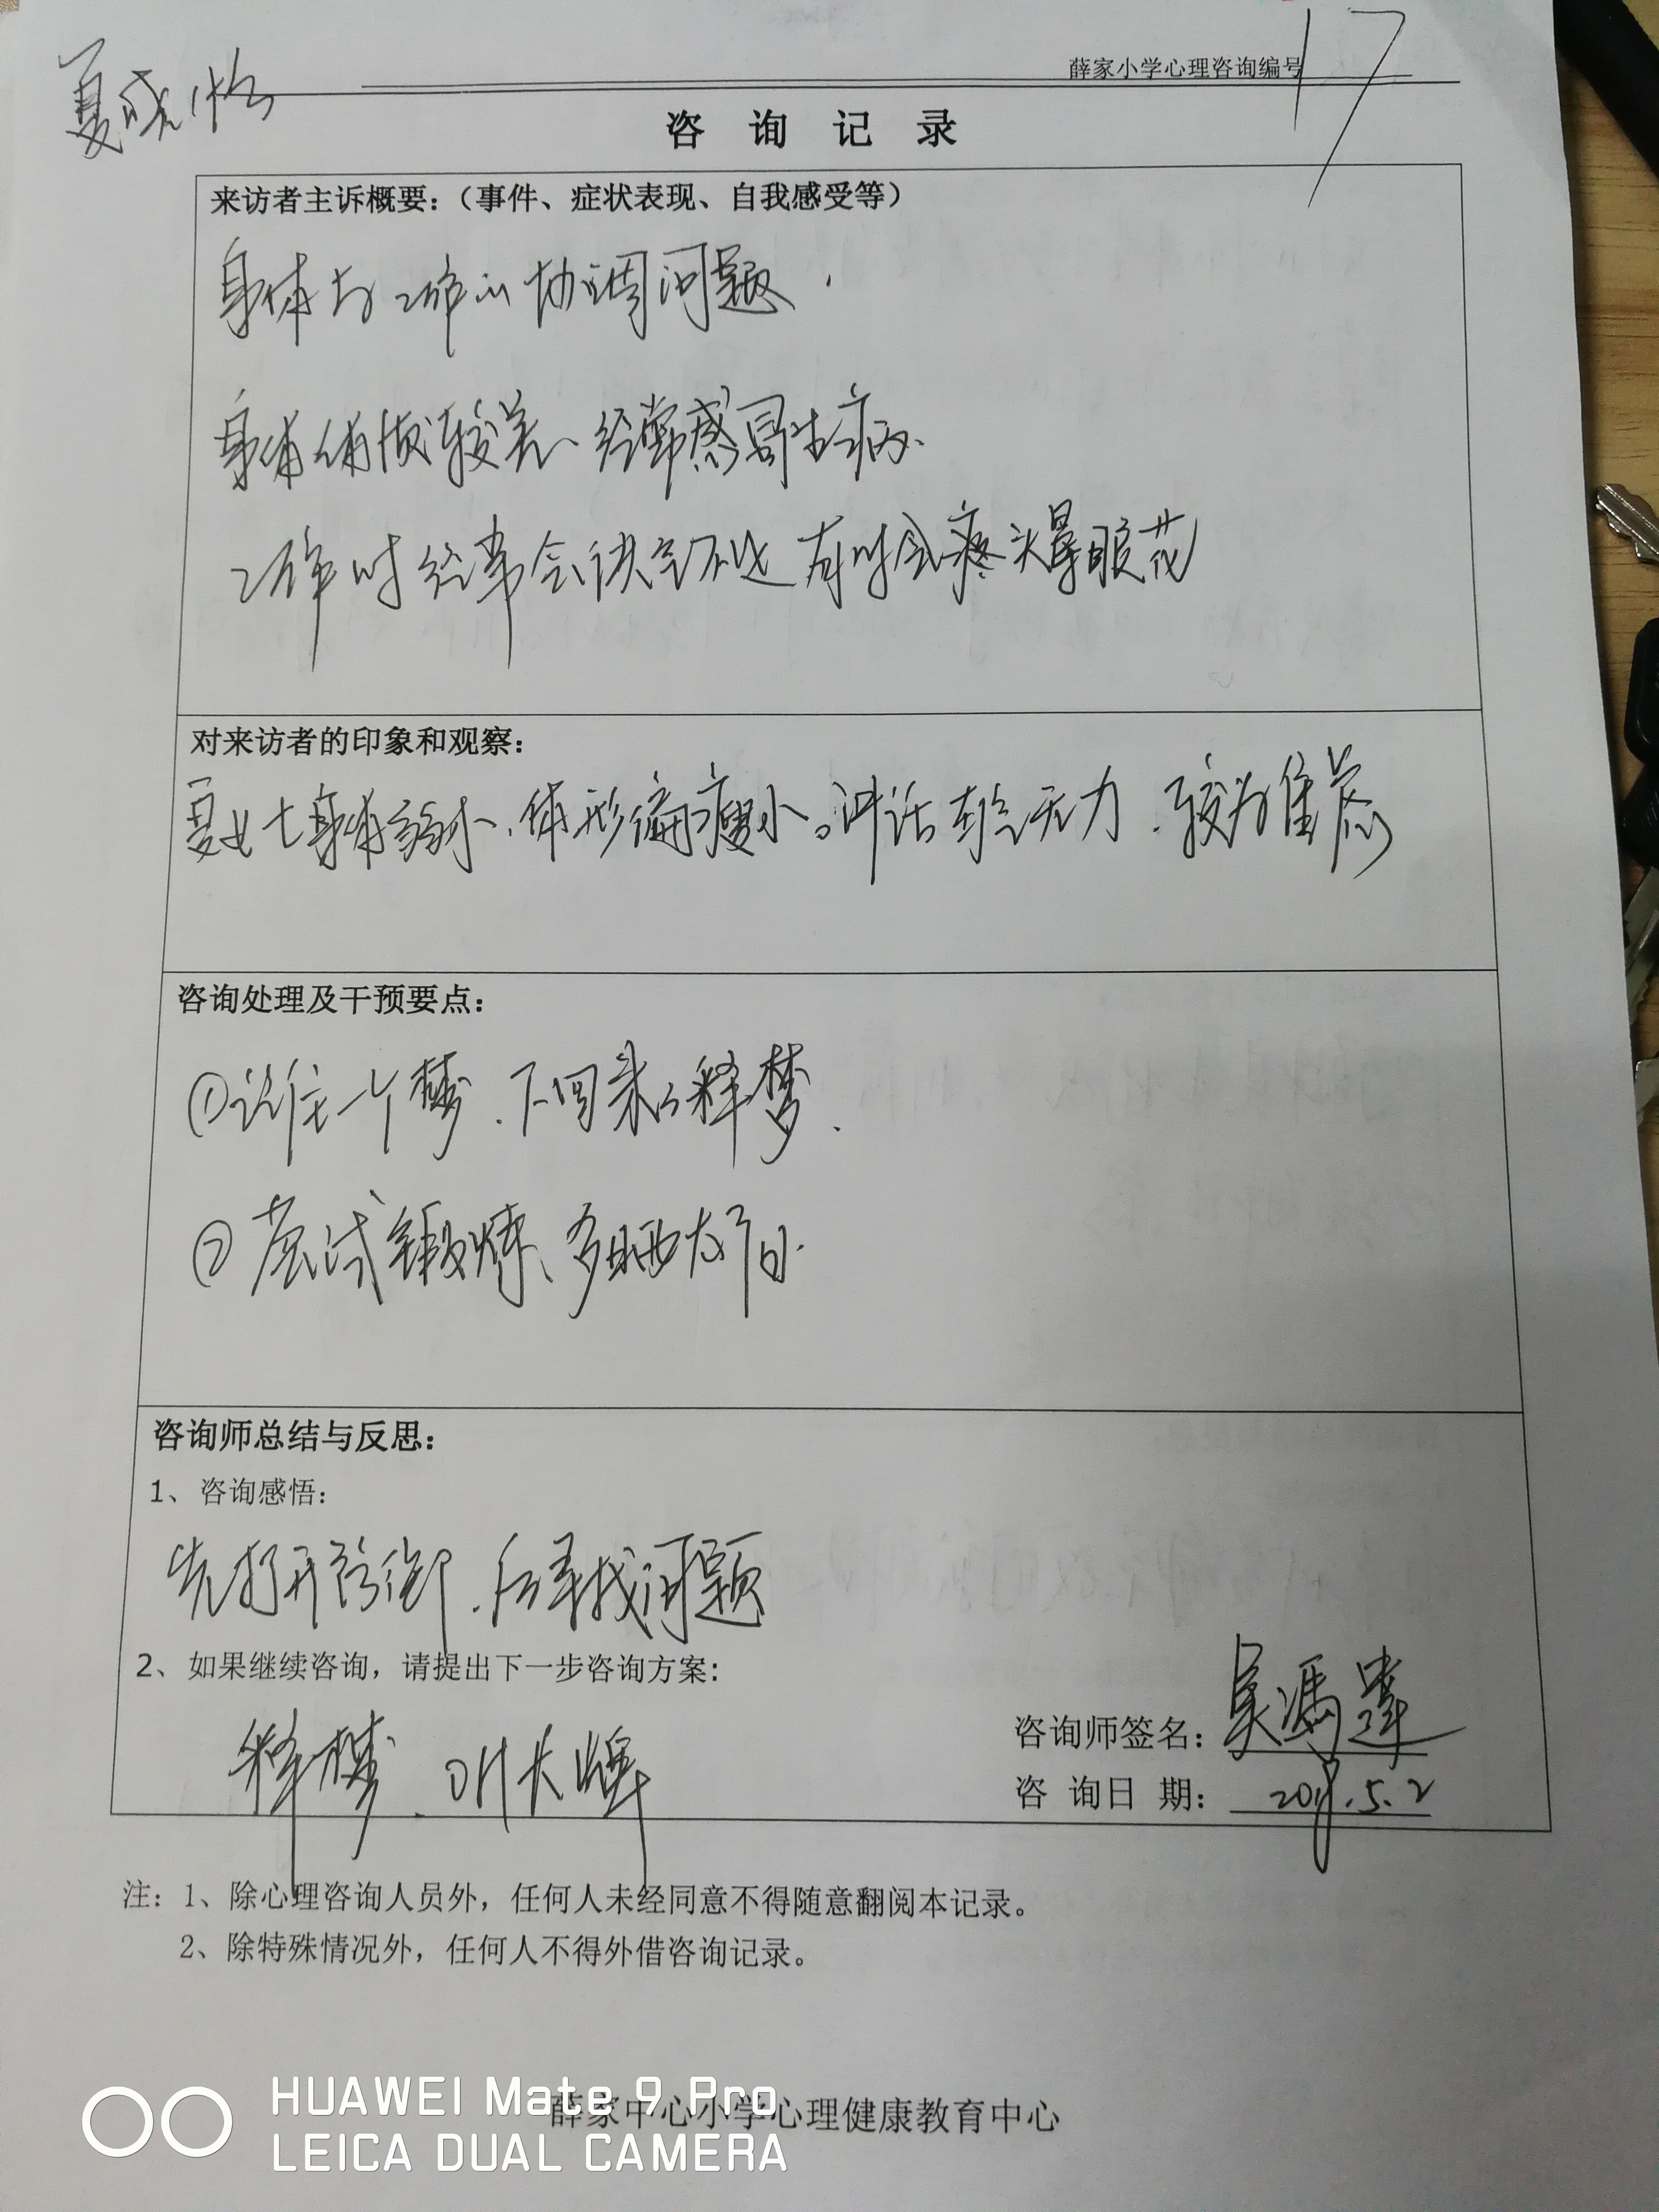 夏晓怡
薛家小学心理咨询编号 17
咨 询 记 录
来访者主诉概要：（事件、症状表现、自我感受等）
身体与工作的协调问题.
身体素质较差、经常感冒生病.
工作时经常会 有时会疼头晕眼花
对来访者的印象和观察：
夏女士身体弱小,体形偏瘦小。讲话有气无力.较为焦虑
咨询处理及干预要点：
①记住一个梦.下回来释梦.
②尝试锻炼、多晒太阳.
咨询师总结与反思：
1、咨询感悟：
先打开防御.后寻找问题
2、如果继续咨询，请提出下一步咨询方案：
释梦.
咨询师签名：吴
咨 询日 期： 5.2
注：1、除心理咨询人员外，任何人未经同意不得随意翻阅本记录。
2、除特殊情况外，任何人不得外借咨询记录。
薛家中心小学心理健康教育中心
HUAWEI Mate 9 Pro
LEICA DUAL CAMERA